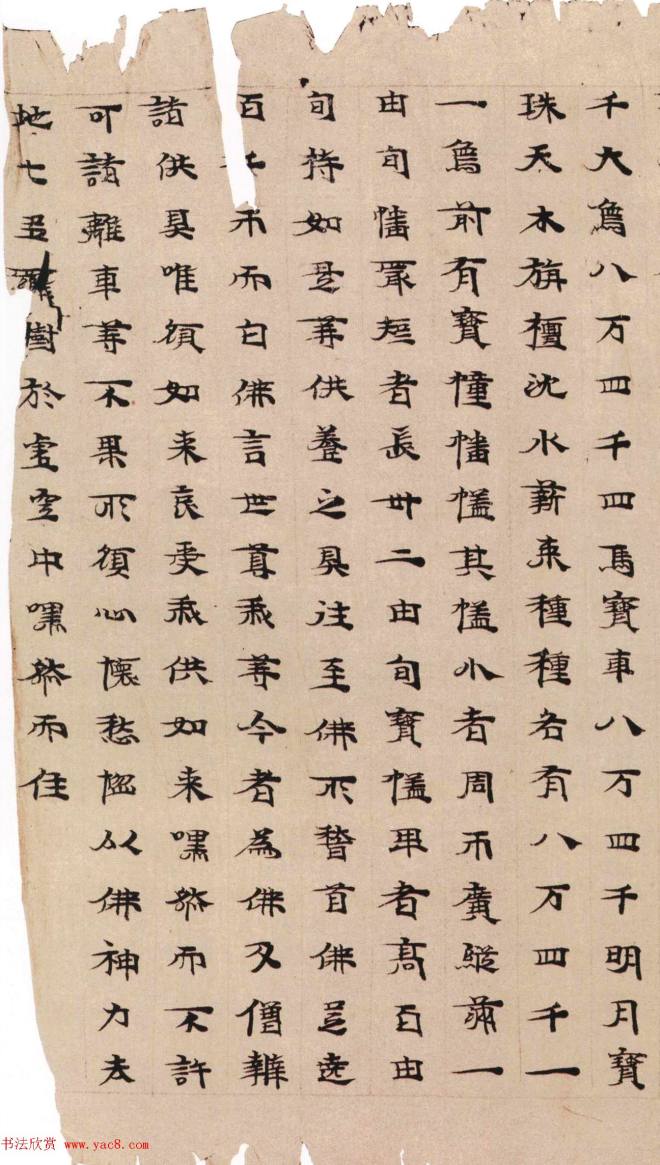 千大象八万四千四馬寶車八万四千明月寶
珠天木旃檀沈水薪束種種各有八万四千一
一象前有寶幢幡㡋其㡋小者周帀廣縱滿一
由旬幡最短者長卅二由旬寶㡋卑者高百由
旬持如是等供養之具往至佛所稽首佛足遶
百千帀而白佛言世尊我等今者為佛及僧辦
諸供具唯願如来哀受我供如来嘿然而不許
可諸離車等不果所願心懷愁惱以佛神力去
地七多羅樹於虛空中嘿然而住
书法欣赏 www.yac8.com